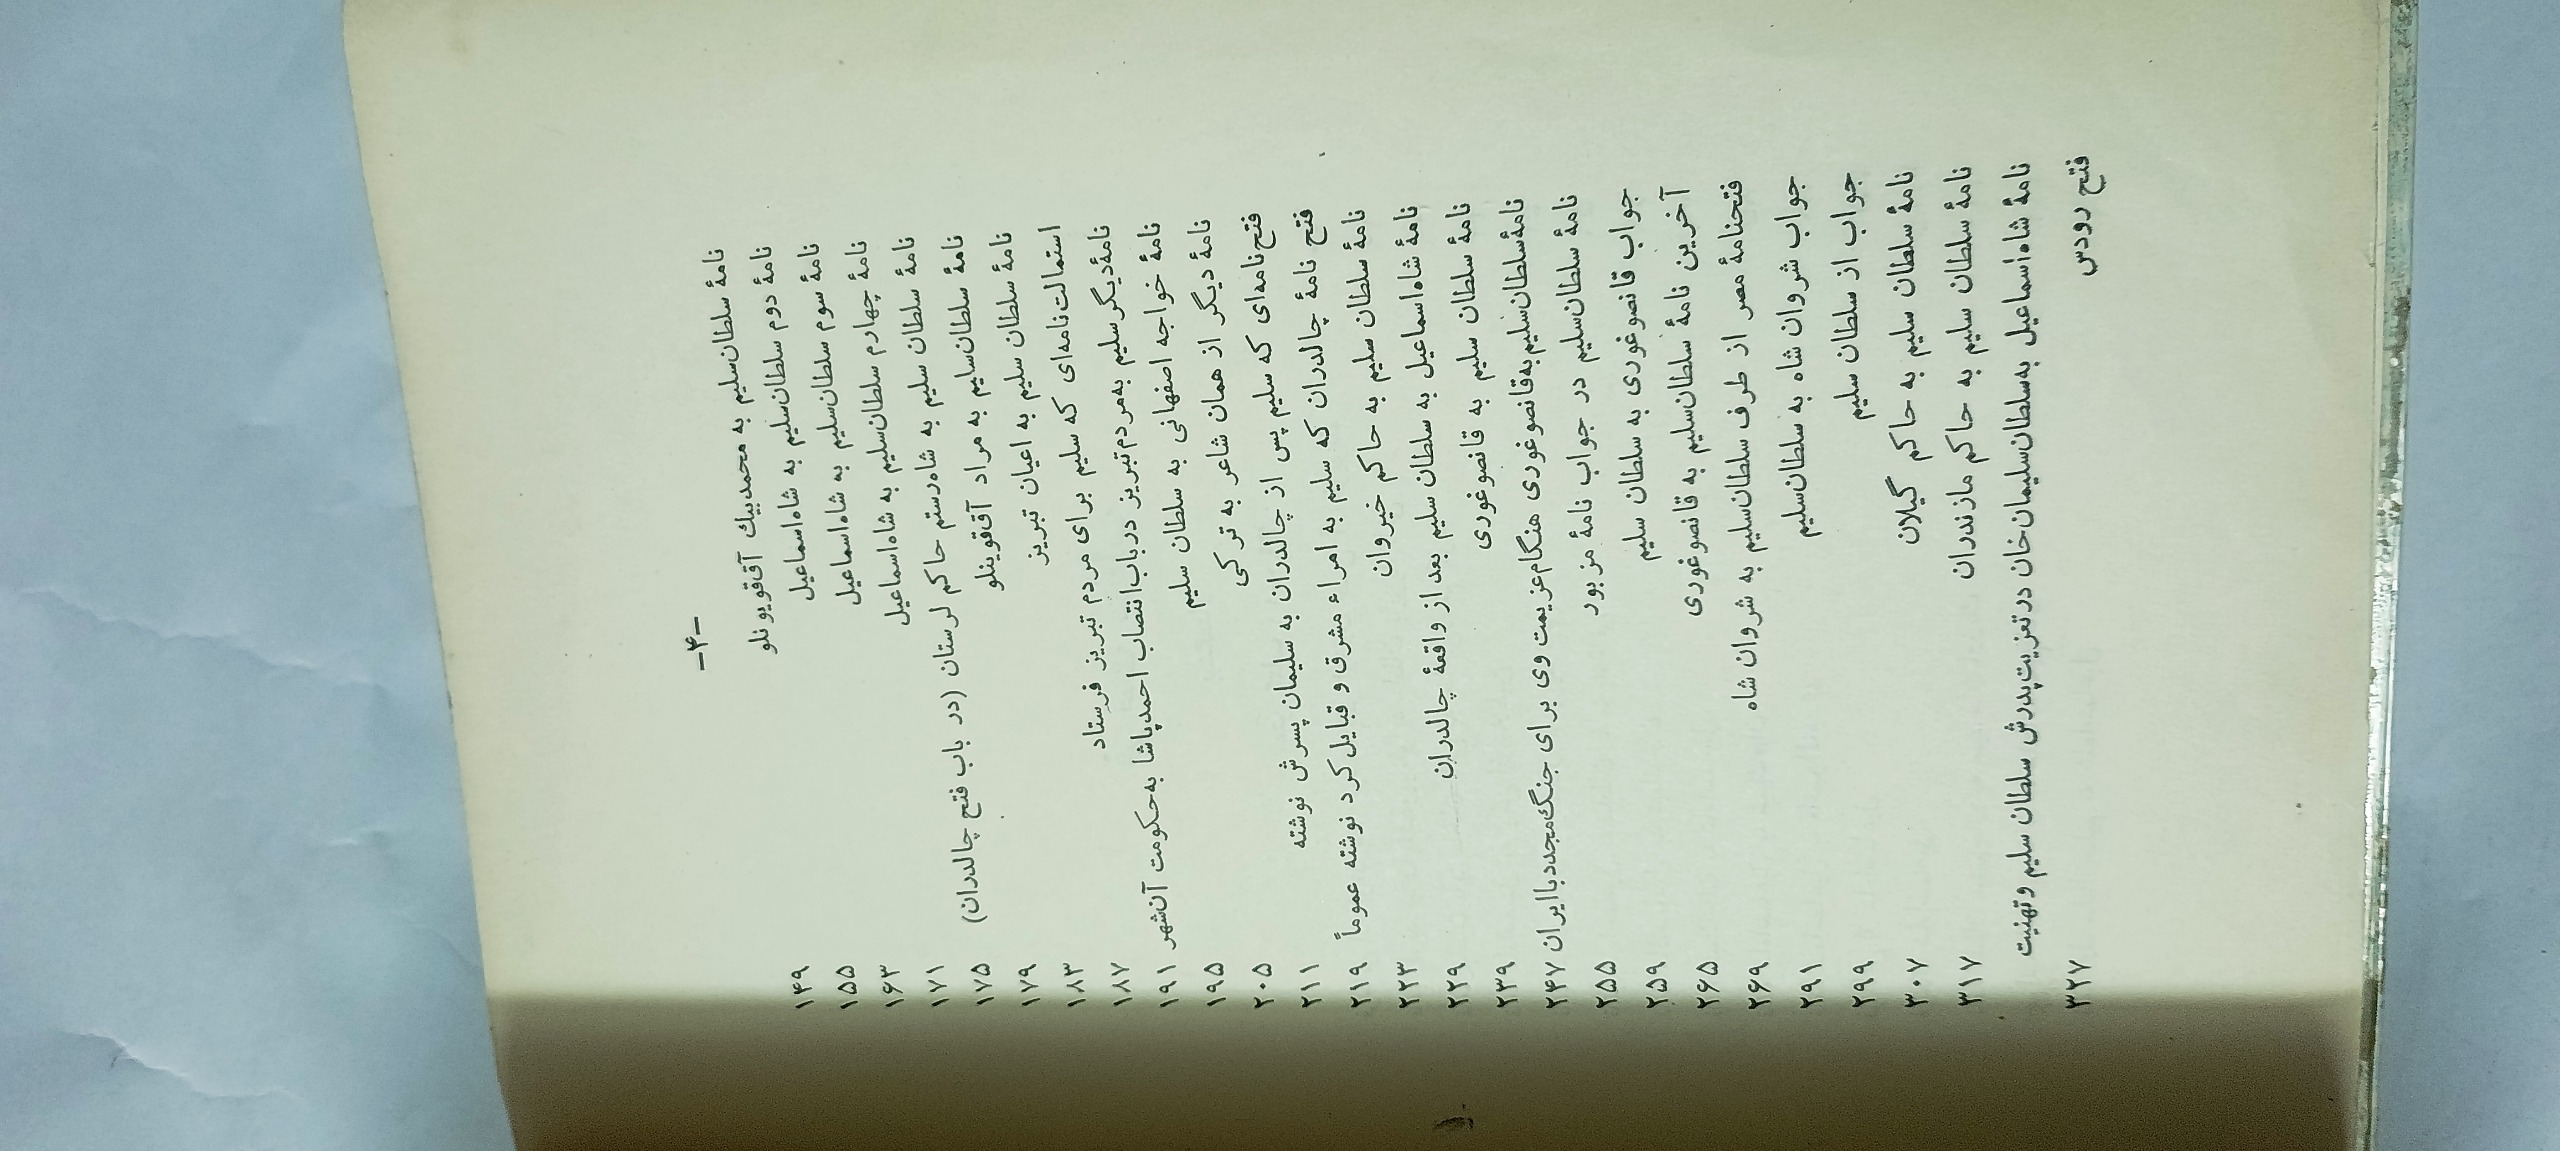 -۴-
نامهٔ سلطان‌سلیم به محمدبیك آق‌قویونلو ۱۴۹
نامهٔ دوم سلطان‌سلیم به شاه‌اسماعیل ۱۵۵
نامهٔ سوم سلطان‌سلیم به شاه‌اسماعیل ۱۶۳
نامهٔ چهارم سلطان‌سلیم به شاه‌اسماعیل ۱۷۱
نامهٔ سلطان سلیم به شاه‌رستم حاکم لرستان (در باب فتح چالدران) ۱۷۵
نامهٔ سلطان‌سلیم به مراد آق‌قوینلو ۱۷۹
نامهٔ سلطان سلیم به اعیان تبریز ۱۸۳
استمالت‌نامه‌ای که سلیم برای مردم تبریز فرستاد ۱۸۷
نامهٔ‌دیگر‌سلیم به‌مردم‌تبریز درباب‌انتصاب احمدپاشا به‌حکومت آن‌شهر ۱۹۱
نامهٔ خواجه اصفهانی به سلطان سلیم ۱۹۵
نامهٔ دیگر از همان شاعر به ترکی ۲۰۵
فتح‌نامه‌ای که سلیم پس از چالدران به سلیمان پسرش نوشته ۲۱۱
فتح نامهٔ چالدران که سلیم به امراء مشرق و قبایل کرد نوشته عموماً ۲۱۹
نامهٔ سلطان سلیم به حاکم خیروان ۲۲۳
نامهٔ شاه‌اسماعیل به سلطان سلیم بعد از واقعهٔ چالدران ۲۲۹
نامهٔ سلطان سلیم به قانصوغوری ۲۳۹
نامهٔ‌سلطان‌سلیم‌به‌قانصوغوری هنگام‌عزیمت وی برای جنگ‌مجدد‌با‌ایران ۲۴۷
نامهٔ سلطان‌سلیم در جواب نامهٔ مزبور ۲۵۵
جواب قانصوغوری به سلطان سلیم ۲۵۹
آخرین نامهٔ سلطان‌سلیم به قانصوغوری ۲۶۵
فتحنامهٔ مصر از طرف سلطان‌سلیم به شروان شاه ۲۶۹
جواب شروان شاه به سلطان‌سلیم ۲۹۱
جواب از سلطان سلیم ۲۹۹
نامهٔ سلطان سلیم به حاکم گیلان ۳۰۷
نامهٔ سلطان سلیم به حاکم مازندران ۳۱۷
نامهٔ شاه‌اسماعیل به‌سلطان‌سلیمان‌خان در‌تعزیت‌پدرش سلطان سلیم و‌تهنیت
فتح رودس ۳۲۷